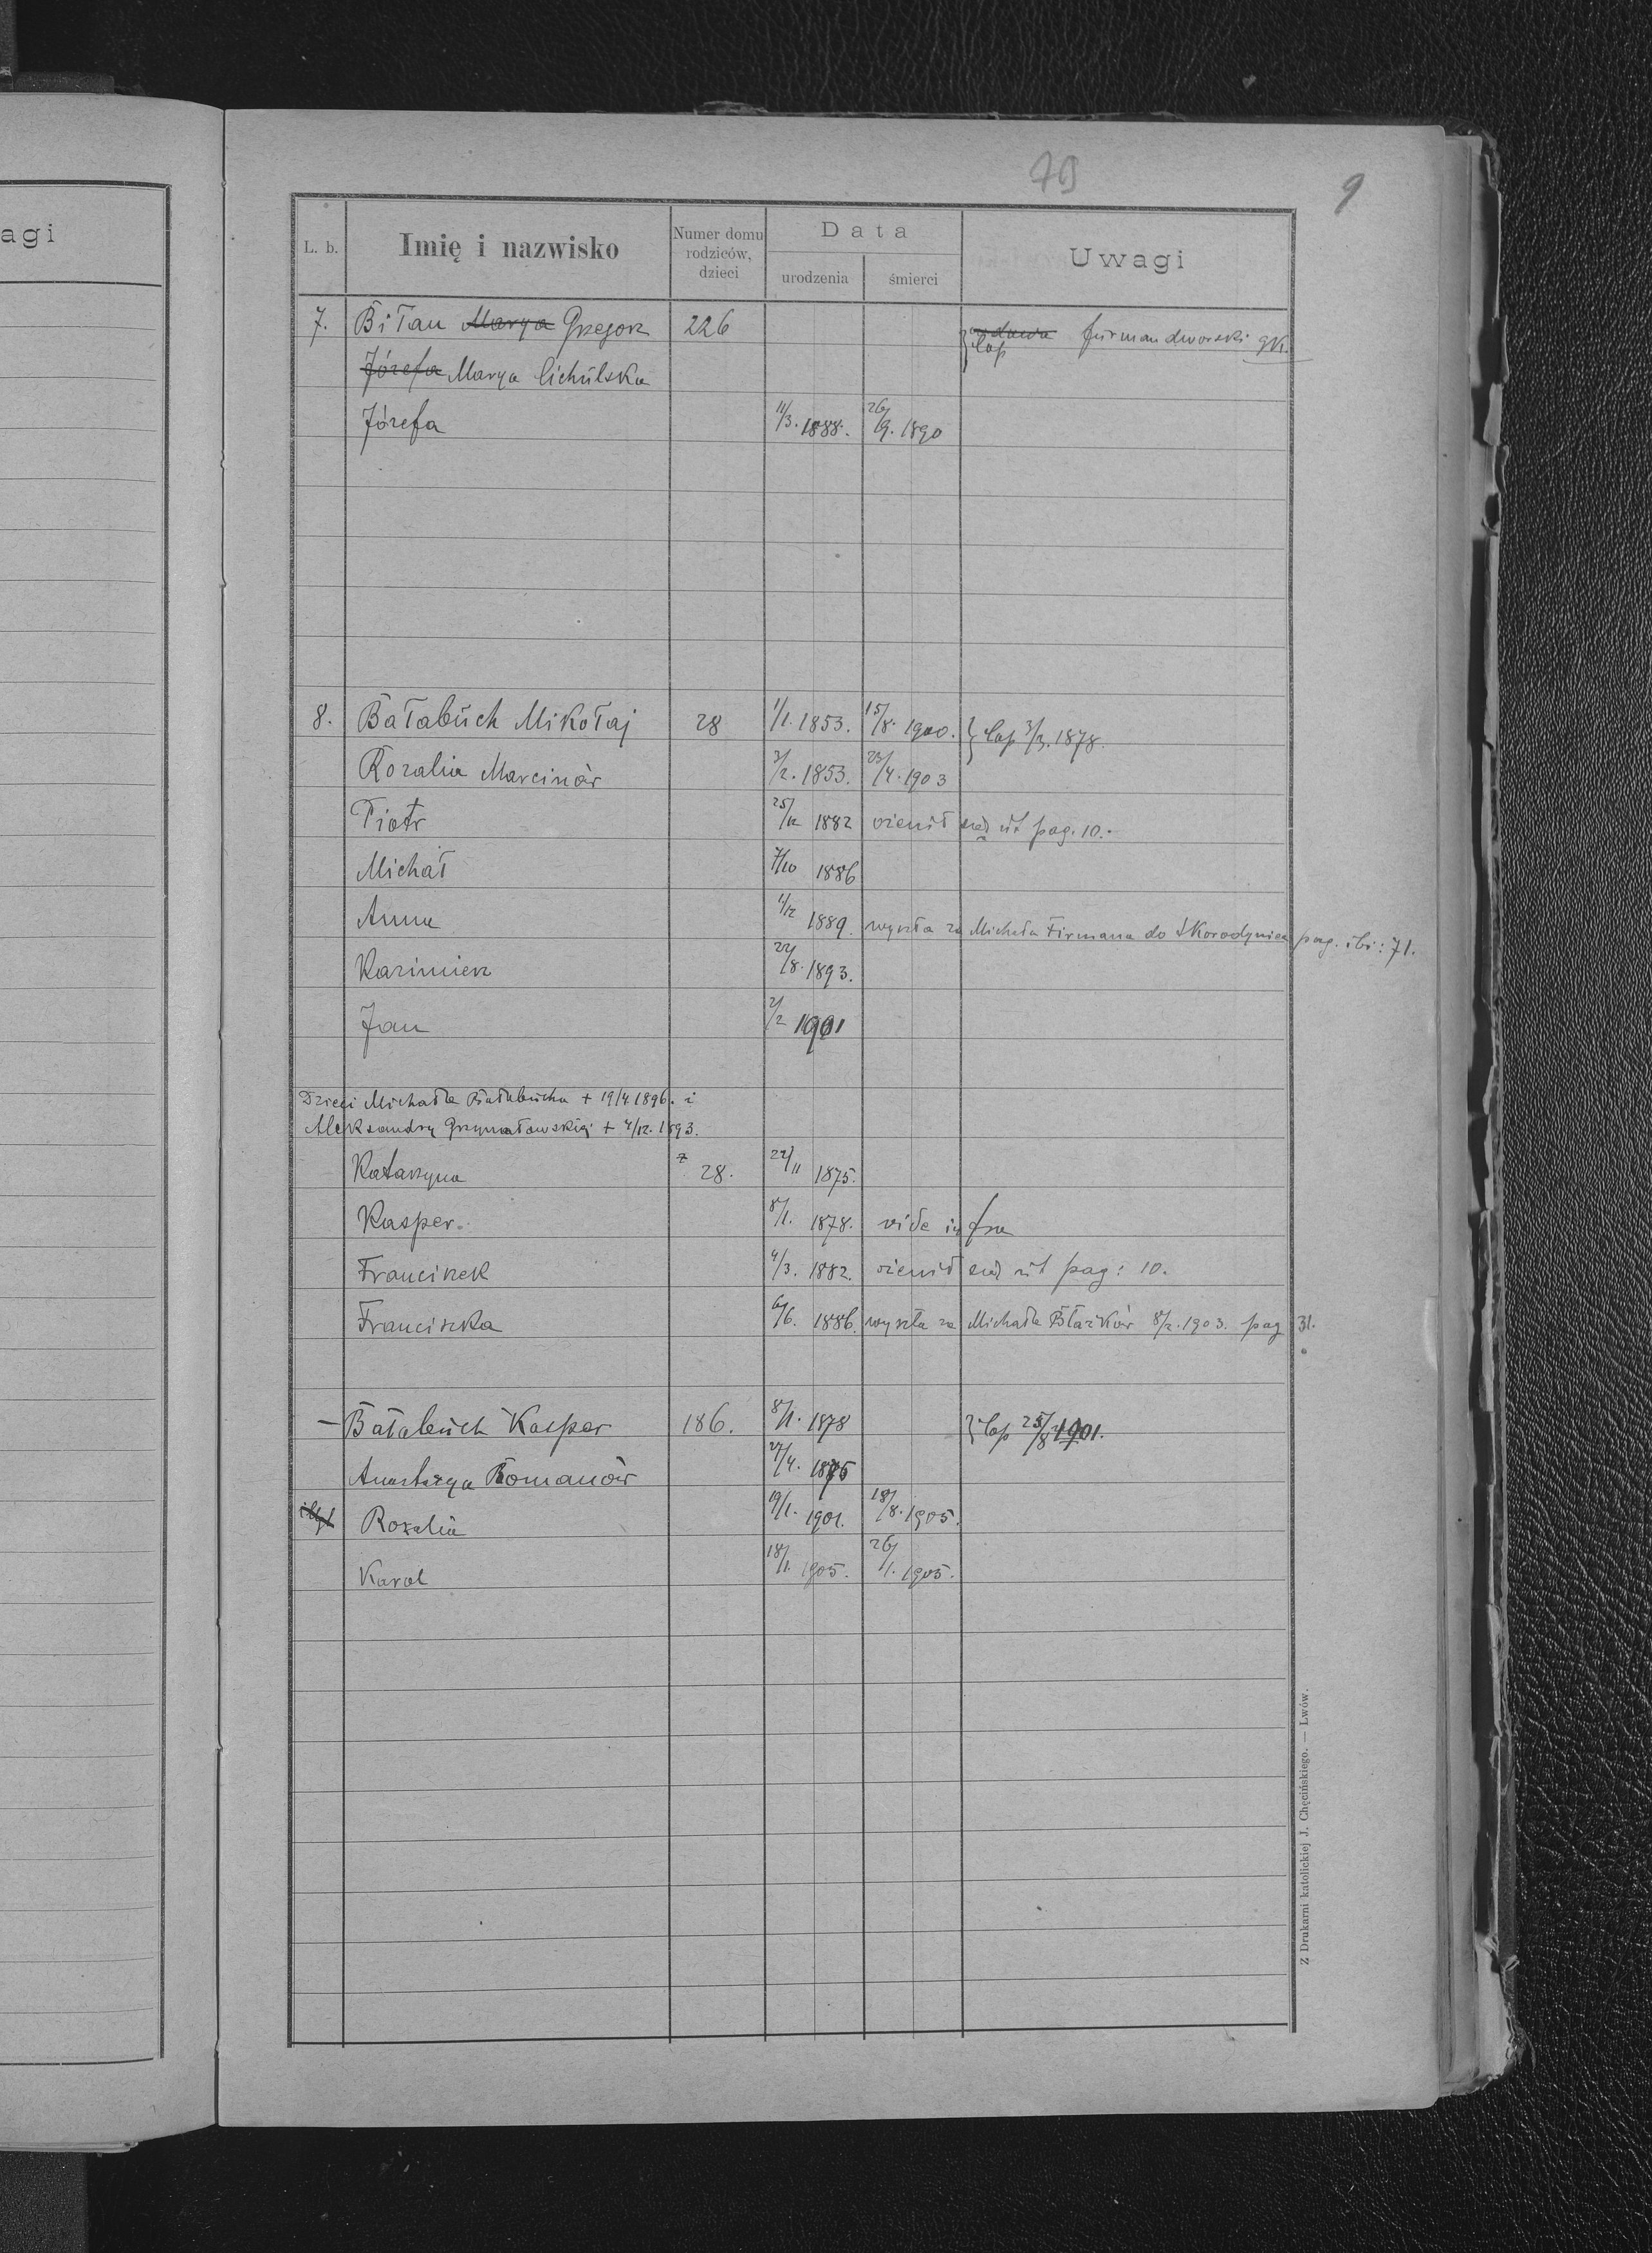 agi
79
9
L. b. Imię i nazwisko Numer domu rodziców, dzieci Data urodzenia śmierci Uwagi
7. Biłan Marya Grzegorz 226 wdowa cop furman dworski gk.
Józefa Marya Cichulska
Józefa 11/3. 1888. 26/9. 1890
8. Bałabuch Mikołaj 28 1/1. 1853. 15/8. 1900. } cop 3/3. 1878.
Rozalia Marcinów 2/2. 1853. 23/4. 1903
Piotr 25/12 1882 ożenił się ut pag. 10.
Michał 7/10 1886
Anna 1/12 1889. wyszła za Michała Firmana do Skorodyniec pag. ibi: 71.
Kazimierz 22/8. 1893.
Jan 2/2 1901
Dzieci Michała Bałabucha + 19/4 1896. i
Aleksandry Grzymałowskiej + 4/12. 1893.
Katarzyna z 28. 22/11 1875.
Kasper 8/1. 1878. vide infra
Franciszek 4/3. 1882. ożenił się ut pag: 10.
Franciszka 6/6. 1886. wyszła za Michała Błażków 8/2. 1903. pag 31.
– Bałabuch Kasper 186. 8/1. 1878 } cop 25/8 1901.
Anastazya Romanów 27/4. 1876
illgt Rozalia 19/1. 1901. 18/8. 1905.
Karol 18/1. 1905. 26/1. 1905.
Z Drukarni katolickiej J. Chęcińskiego. — Lwów.